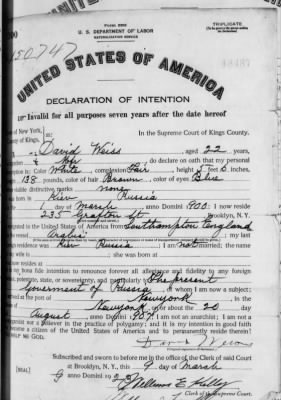 Form 2203
TRIPLICATE
U. S. DEPARTMENT OF LABOR
NATURALIZATION SERVICE
150747
UNITED STATES OF AMERICA
DECLARATION OF INTENTION
Invalid for all purposes seven years after the date hereof
of New York,
In the Supreme Court of Kings County.
of Kings,
David Weiss, aged 22 years,
do declare on oath that my personal
Color White, complexion Fair, height 5 feet
138 pounds, color of hair Brown, color of eyes Blue
visible distinctive marks none
born in Kiev Russia
day of March, anno Domini 900: I now reside
235 Grafton St Brooklyn, N. Y.
to the United States of America from Southampton England
Arabic; my last
residence was Kiev Russia. I am not married; the name
wife is ; she was born at
bona fide intention to renounce forever all allegiance and fidelity to any foreign
potentate, state, or sovereignty, and particularly to The present
Government of Russia, of whom I am now a subject;
at the port of New york, in the
New york on or about the 20 day
August, anno Domini 907: I am not an anarchist; I am not a
polygamist nor a believer in the practice of polygamy; and it is my intention in good faith
become a citizen of the United States of America and to permanently reside therein:
HELP ME GOD.
David Weiss
Subscribed and sworn to before me in the office of the Clerk of said Court
[SEAL]
at Brooklyn, N. Y., this 9 day of March
anno Domini 192
William E. Kelly
Clerk of the Supreme Court.